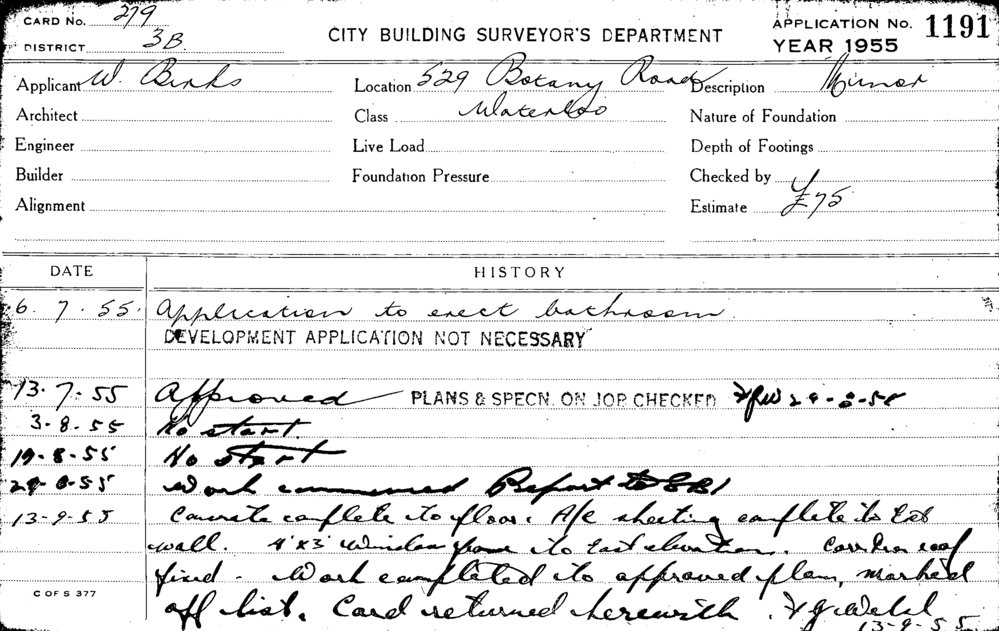 CARD No. 279
DISTRICT 3B
CITY BUILDING SURVEYOR'S DEPARTMENT
APPLICATION No. 1191
YEAR 1955
Applicant W. Binks Location 529 Botany Road Description Minor
Architect Class Waterloo Nature of Foundation
Engineer Live Load Depth of Footings
Builder Foundation Pressure Checked by
Alignment Estimate £75
DATE HISTORY
6. 7. 55. Application to erect bathroom.
DEVELOPMENT APPLICATION NOT NECESSARY
13. 7. 55 Approved PLANS & SPECN. ON JOB CHECKED
3. 8. 55 No start.
19. 8. 55 No start
29. 8. 55 Work commenced Report to
13. 9. 55 Concrete complete to floor. A/c sheeting complete to East
wall. 4'x3' Window frame to East elevation. Corr. Iron roof
fixed. Work completed to approved plan, marked
off list. Card returned herewith.
13-9-55
C OF S 377